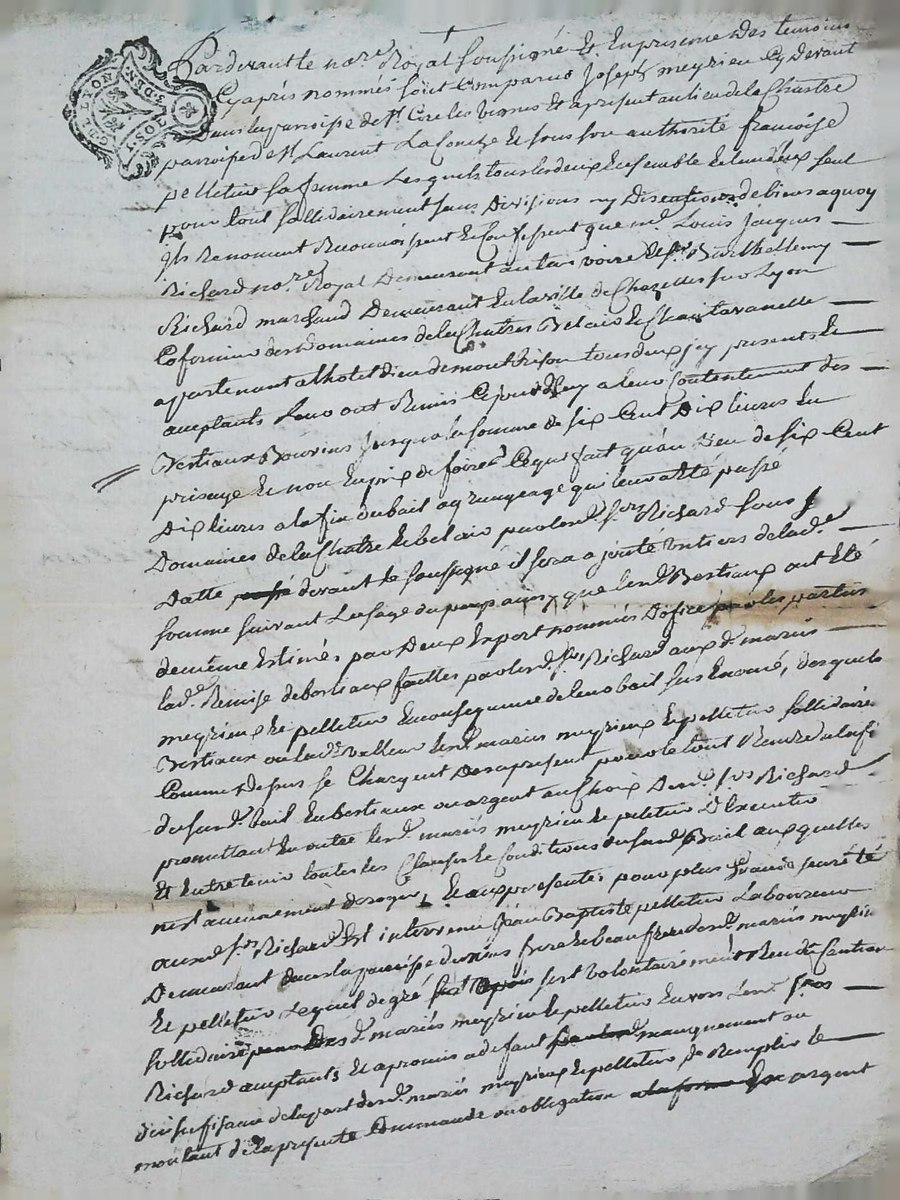 GEN. DE LYON
2. DEN.
Pardevant le no.re Royal soussigné Et En presence des temoins
Cy apres nommés soit Comparus Joseph meyrieu Cy devant
dans la parroisse de st Cire les vignes et apresent au lieu de la Chastre
parroisse de st Laurent La Conche Et sous son authorité francoise
pelletier sa femme Lesquels tous les deux Ensemble Et lun deux seul
pour tout sollidairement sans Divisions ny Discutions de biens a quoy
Ils Renoncent Reconnoissent Et Confessent que mr Louis Jacques
Richard no.re Royal Demeurant au lieu voire de st Barthellemy
Richard marchand Demeurant En la ville de Chazelles sur Lyon
Cofermiers des Domaines de la Chatres Belair Et Chantavanelle
appartenant a lhotel dieu de montbrison tous deux jcy presents Et
acceptants Leur ont Remis Cejourdhuy a leur Contentement des
Bestiaux Bouvins Jusqua la somme de six Cent Dix livres En
prisage Et non En prix de foire Ce qui fait qu'au Lieu de six Cent
Dix livres a la fin du bail a grangeage qui leur a été passé
Domaines de la Chatre Et belair par lesd. srs Richard sous
Datte devant le soussigné il sera ajouté un tiers de lad.e
somme suivant Lusage du pays ainsy que lesd. Bestiaux ont Eté
de même Estimés par Deux Expert nommés Doffice par les parties
lad.e Remise de bestiaux faittes par lesd. srs Richard aux d. mariés
meyrieux Et pelletier En consequence de leur bail sus Enoncé, desquels
Bestiaux ou lad.e valleur lesd. mariés meyrieux Et pelletier sollidaire
Comme dessus se Chargent Des apresent pour le tout Rendre a la fin
dususd. bail En bestiaux ou argent au Choix Desd. srs Richard
promettant En outre lesd. mariés meyrieu Et pelletier D'Executer
Et Entretenir toutes les Clauses Et Conditions dususd. Bail auxquelles
n'est aucunement derogé, Et aux presentes pour plus Grande sureté
auxd. srs Richard Est intervenu Jean Baptiste pelletier Laboureur
Demeurant dans la parroisse de frere Et beau frere desd. mariés meyrieu
Et pelletier Lequel de gré s'est volontairement Rendu Caution
sollidaire desd. mariés meyrieu Et pelletier Envers Lesd. srs
Richard acceptants Et a promis a defaut manquement ou
insuffisance de la part desd. mariés meyrieux Et pelletier de Remplir le
montant de la presente Commande ou obligation En argent